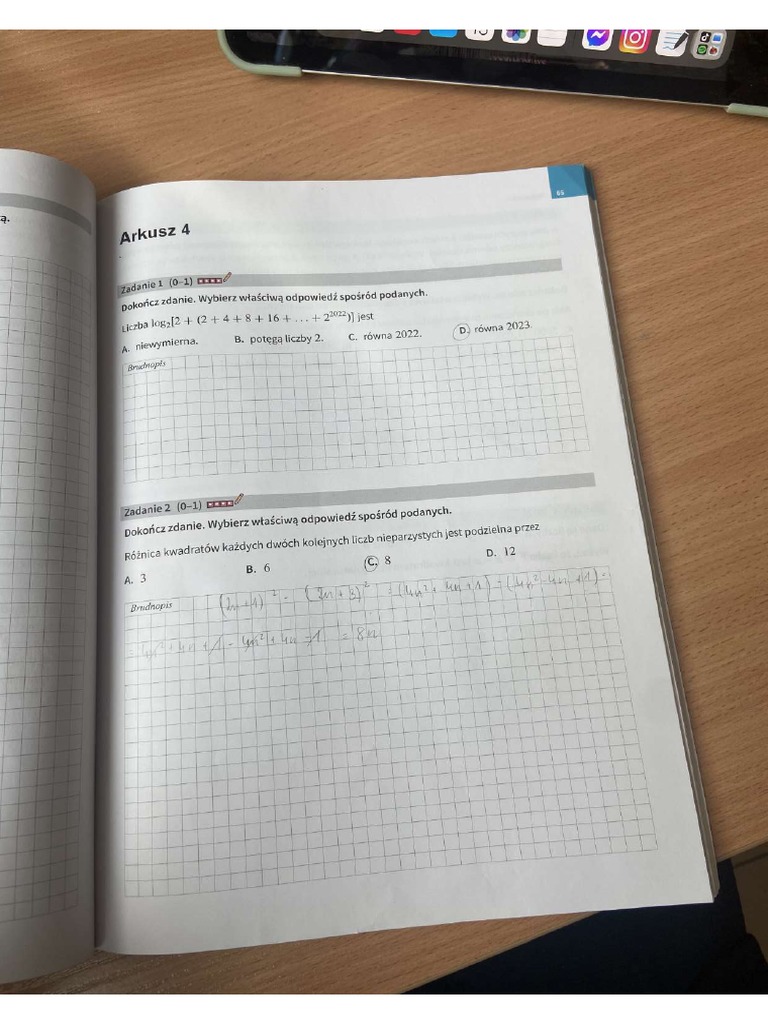 ą.
65
Arkusz 4
Zadanie 1 (0–1)
Dokończ zdanie. Wybierz właściwą odpowiedź spośród podanych.
Liczba log₂[2 + (2 + 4 + 8 + 16 + … + 2²⁰²²)] jest
A. niewymierna. B. potęgą liczby 2. C. równa 2022. D. równa 2023.
Brudnopis
Zadanie 2 (0–1)
Dokończ zdanie. Wybierz właściwą odpowiedź spośród podanych.
Różnica kwadratów każdych dwóch kolejnych liczb nieparzystych jest podzielna przez
A. 3 B. 6 C. 8 D. 12
Brudnopis
(2n+1)² - (2n+3)² = (4n² + 4n + 1) - (4n² - 4n + 1) =
= 4n² + 4n + 1 - 4n² + 4n - 1 = 8n